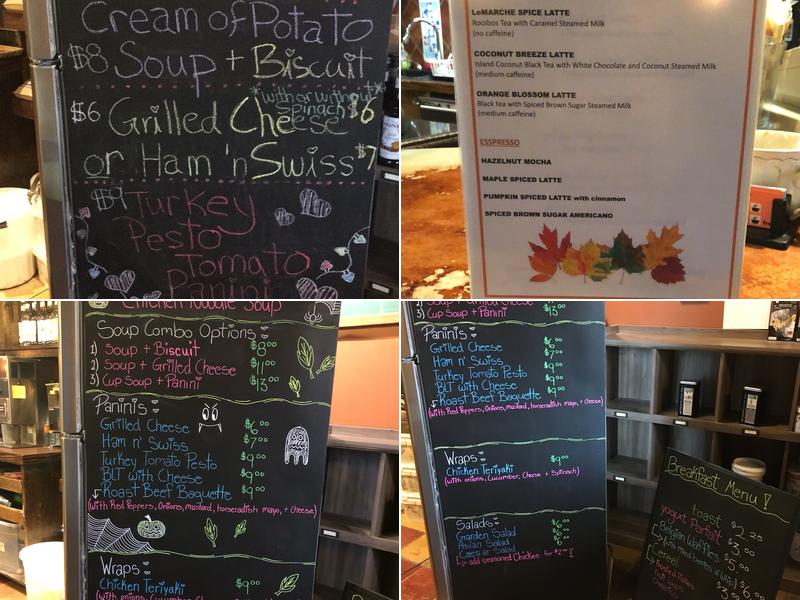 Cream of Potato
$8 Soup + Biscuit
*with or without*
spinach
$6 Grilled Cheese $6
or Ham 'n Swiss $7
$9 Turkey
Pesto
Tomato
Panini
LeMARCHE SPICE LATTE
Rooibos Tea with Caramel Steamed Milk
(no caffeine)
COCONUT BREEZE LATTE
Island Coconut Black Tea with White Chocolate and Coconut Steamed Milk
(medium caffeine)
ORANGE BLOSSOM LATTE
Black tea with Spiced Brown Sugar Steamed Milk
(medium caffeine)
ESSPRESSO
HAZELNUT MOCHA
MAPLE SPICED LATTE
PUMPKIN SPICED LATTE with cinnamon
SPICED BROWN SUGAR AMERICANO
Chicken Noodle Soup
Soup Combo Options
1) Soup + Biscuit $8.00
2) Soup + Grilled Cheese $11.00
3) Cup Soup + Panini $13.00
Paninis
Grilled Cheese $6.00
Ham n' Swiss $7.00
Turkey Tomato Pesto $9.00
BLT with Cheese $9.00
Roast Beef Baguette $9.00
(with Red Peppers, Onions, mustard, horseradish mayo, + cheese)
Wraps
Chicken Teriyaki $9.00
(with onions, Cucumber, Cheese +
3) Cup Soup + Panini $13.00
Paninis
Grilled Cheese $6.00
Ham n' Swiss $7.00
Turkey Tomato Pesto $9.00
BLT with Cheese $9.00
Roast Beef Baguette $9.00
(with Red Peppers, Onions, mustard, horseradish mayo, + cheese)
Wraps
Chicken Teriyaki $9.00
(with onions, Cucumber, Cheese + Spinach)
Salads
Garden Salad $6.00
Asian Salad $6.00
Caesar Salad
add seasoned Chicken for
Breakfast Menu!
toast $2.25
yogurt Parfait $3.00
Belgian Waffles $5.00
$6.00
Cereal